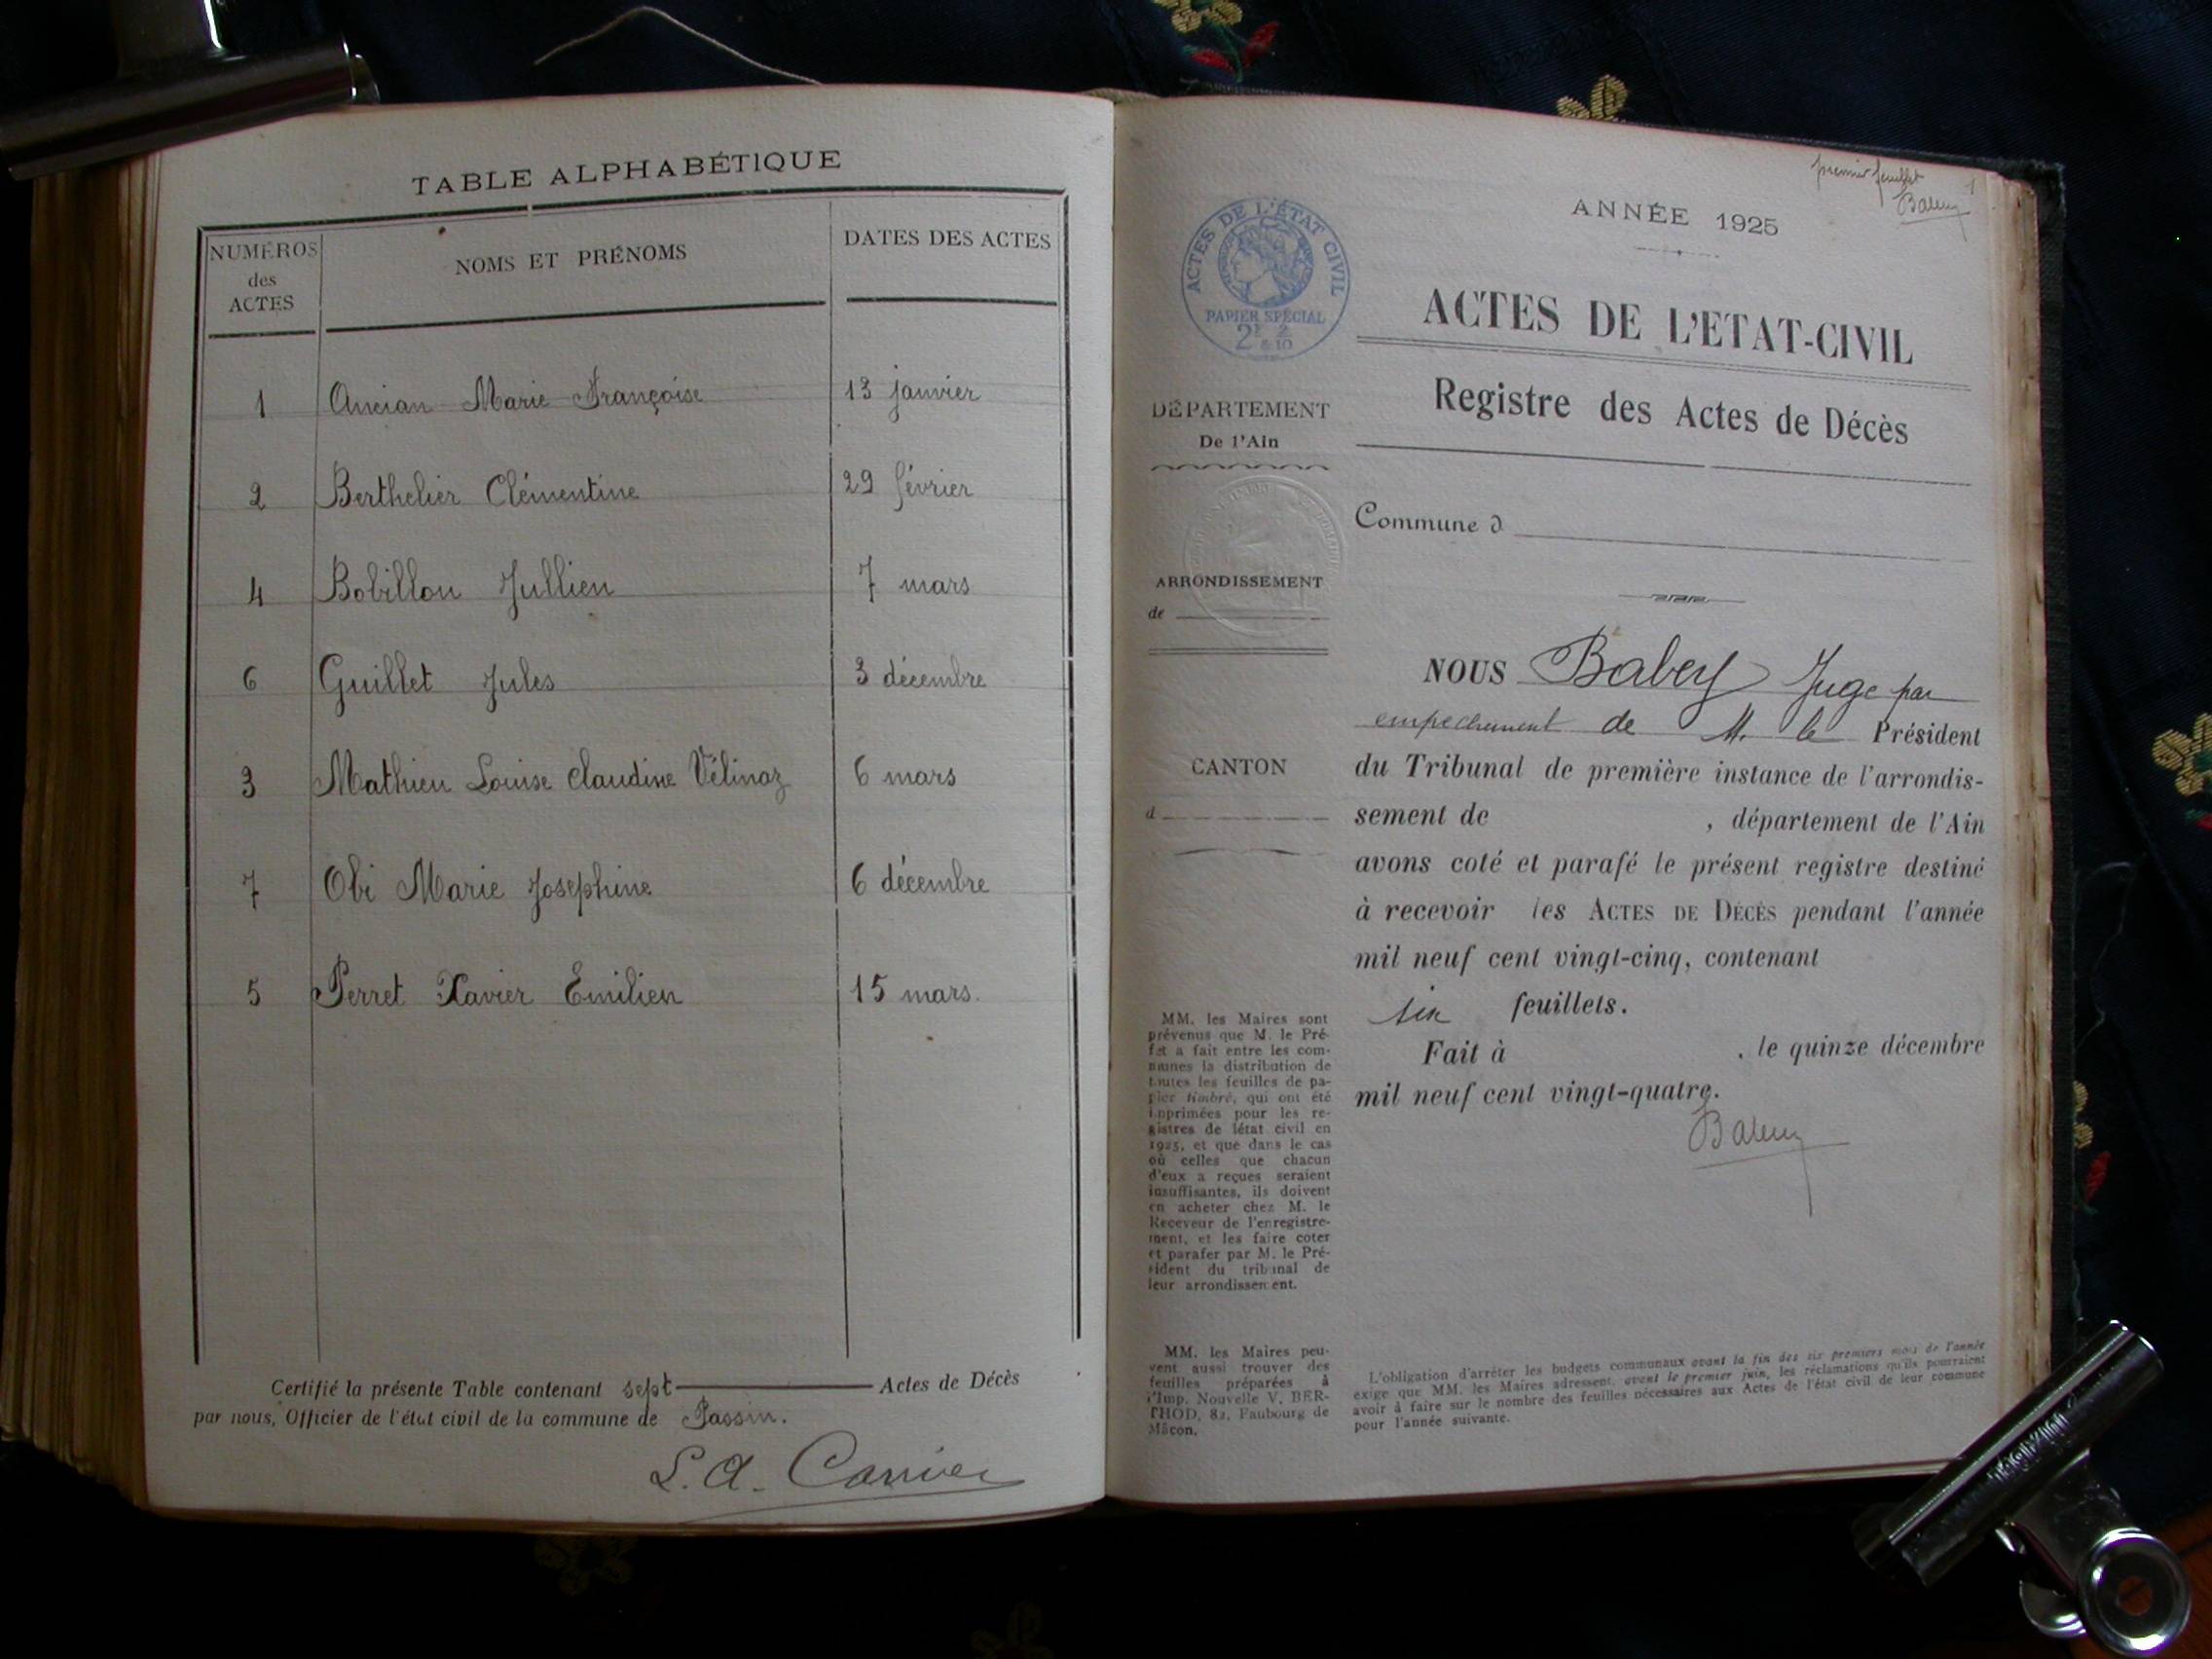 TABLE ALPHABÉTIQUE
NUMÉROS
des
ACTES
NOMS ET PRÉNOMS
DATES DES ACTES
1 Ancian Marie Françoise 13 janvier
2 Berthelier Clémentine 29 février
4 Bobillon Jullien 7 mars
6 Guillet Jules 3 décembre
3 Mathieu Louise Claudine Vélinaz 6 mars
7 Obi Marie Josephine 6 décembre
5 Perret Xavier Emilien 15 mars.
Certifié la présente Table contenant sept Actes de Décès
par nous, Officier de l'état civil de la commune de Passin.
L. A. Carrier
premier feuillet 1
ANNÉE 1925
ACTES DE L'ÉTAT CIVIL
PAPIER SPÉCIAL
ACTES DE L'ETAT-CIVIL
Registre des Actes de Décès
DÉPARTEMENT
De l'Ain
Commune d
ARRONDISSEMENT
de
CANTON
d
NOUS Babey Juge par
empechement de M. le Président
du Tribunal de première instance de l'arrondis-
sement de , département de l'Ain
avons coté et parafé le présent registre destiné
à recevoir les ACTES DE DÉCÈS pendant l'année
mil neuf cent vingt-cinq, contenant
six feuillets.
Fait à , le quinze décembre
mil neuf cent vingt-quatre.
MM. les Maires sont
prévenus que M. le Pré-
fet a fait entre les com-
munes la distribution de
toutes les feuilles de pa-
pier timbré, qui ont été
imprimées pour les re-
gistres de létat civil en
1925, et que dans le cas
où celles que chacun
d'eux a reçues seraient
insuffisantes, ils doivent
en acheter chez M. le
Receveur de l'enregistre-
ment, et les faire coter
et parafer par M. le Pré-
sident du tribunal de
leur arrondissement.
MM. les Maires peu-
vent aussi trouver des
feuilles préparées à
l'Imp. Nouvelle V. BER-
THOD, 82, Faubourg de
Mâcon.
L'obligation d'arrêter les budgets communaux avant la fin des six premiers mois de l'année
exige que MM. les Maires adressent, avant le premier juin, les réclamations qu'ils pourraient
avoir à faire sur le nombre des feuilles nécessaires aux Actes de l'état civil de leur commune
pour l'année suivante.